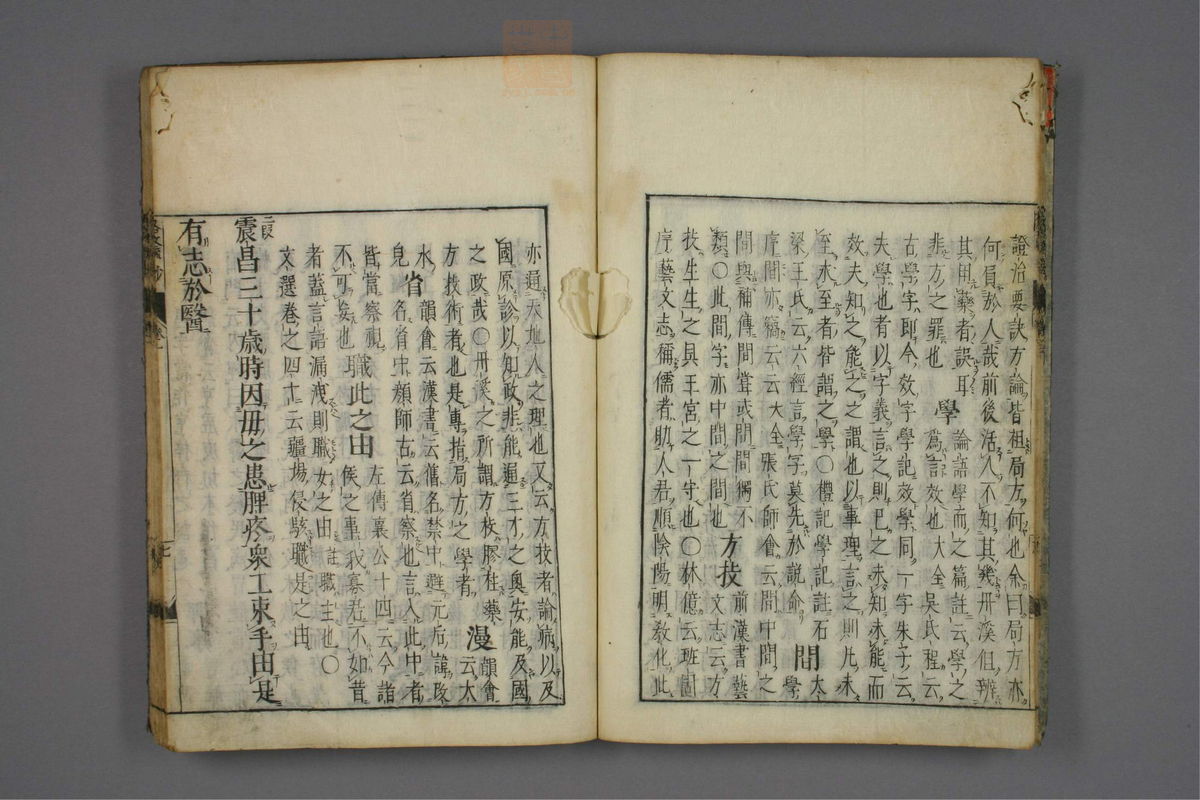 證治要訣方論皆祖局方何也余曰局方亦
何負於人哉前後活人不知其幾丹溪但辨
其用藥者誤耳 學 論語學而之篇註云學之
非方之罪也 為言效也大全吳氏程云
古學字即今效字學記效學同一字朱子云
夫學也者以字義言之則巳之未知未能而
效夫知之能之之謂也以事理言之則凡未
至求至者皆謂之學〇禮記學記註石
梁王氏云六經言學字莫先於説命 間 大學
序間亦竊云云大全張氏師曾云間中間之
間與補傳間嘗或間間獨不
類〇此間字亦中間之間也 方技 前漢書藝
文志云方
技生生之具王官之一守也〇林億云班固
序藝文志稱儒者助人君順陰陽明教化此
亦通天地人之理也又云方技者論病以及
國原診以知政非能通三才之奧安能及國
之政哉〇丹溪之所謂方技膠柱藥
方技術者也是專指局方之學者 漫 韻會
云大
水 省 韻會云漢書云舊名禁中避元后諱改
皃 名省中顔師古云省察也言入此中者
皆當察視 職此之由 左傳襄公十四云今諸
不可妄也 侯之事我寡君不如昔
者蓋言語漏洩則職女之由註職主也〇
文選卷之四十云疆場侵駭職是之由
二段
震昌三十歲時因母之患脾疼衆工束手由是
有志於醫